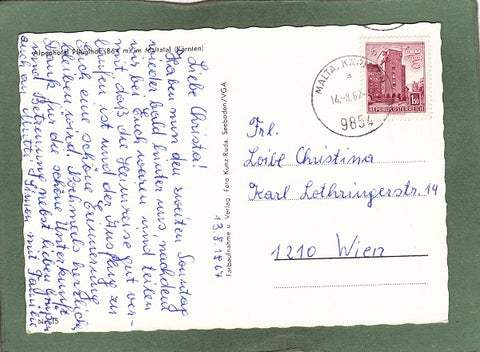 Alpenhotel Pflüglhof (864 m) im Maltatal (Kärnten)
Liebe Christa!
Haben nun den zweiten Sonntag
wieder bald hinter uns nachdem
wir bei Euch waren und teilen
mit daß die Heimreise gut ver-
laufen ist und der Ausflug zu
Euch eine schöne Erinnerung
bleiben wird. Nochmals herzlich
Dank für die schöne Unterkunft
und Betreuung nebst lieben Grüßen
auch an Mutti Simon mit Familie
13.8.1967
Farbaufnahme u. Verlag: Foto Kunz-Ruda, Seeboden/VGA
MALTA, KÄR
a
14.-8.67
9854
1.50
REPUBLIK ÖSTERREICH
Frl.
Loibe Christina
Karl Lothringerstr. 14
1210 Wien